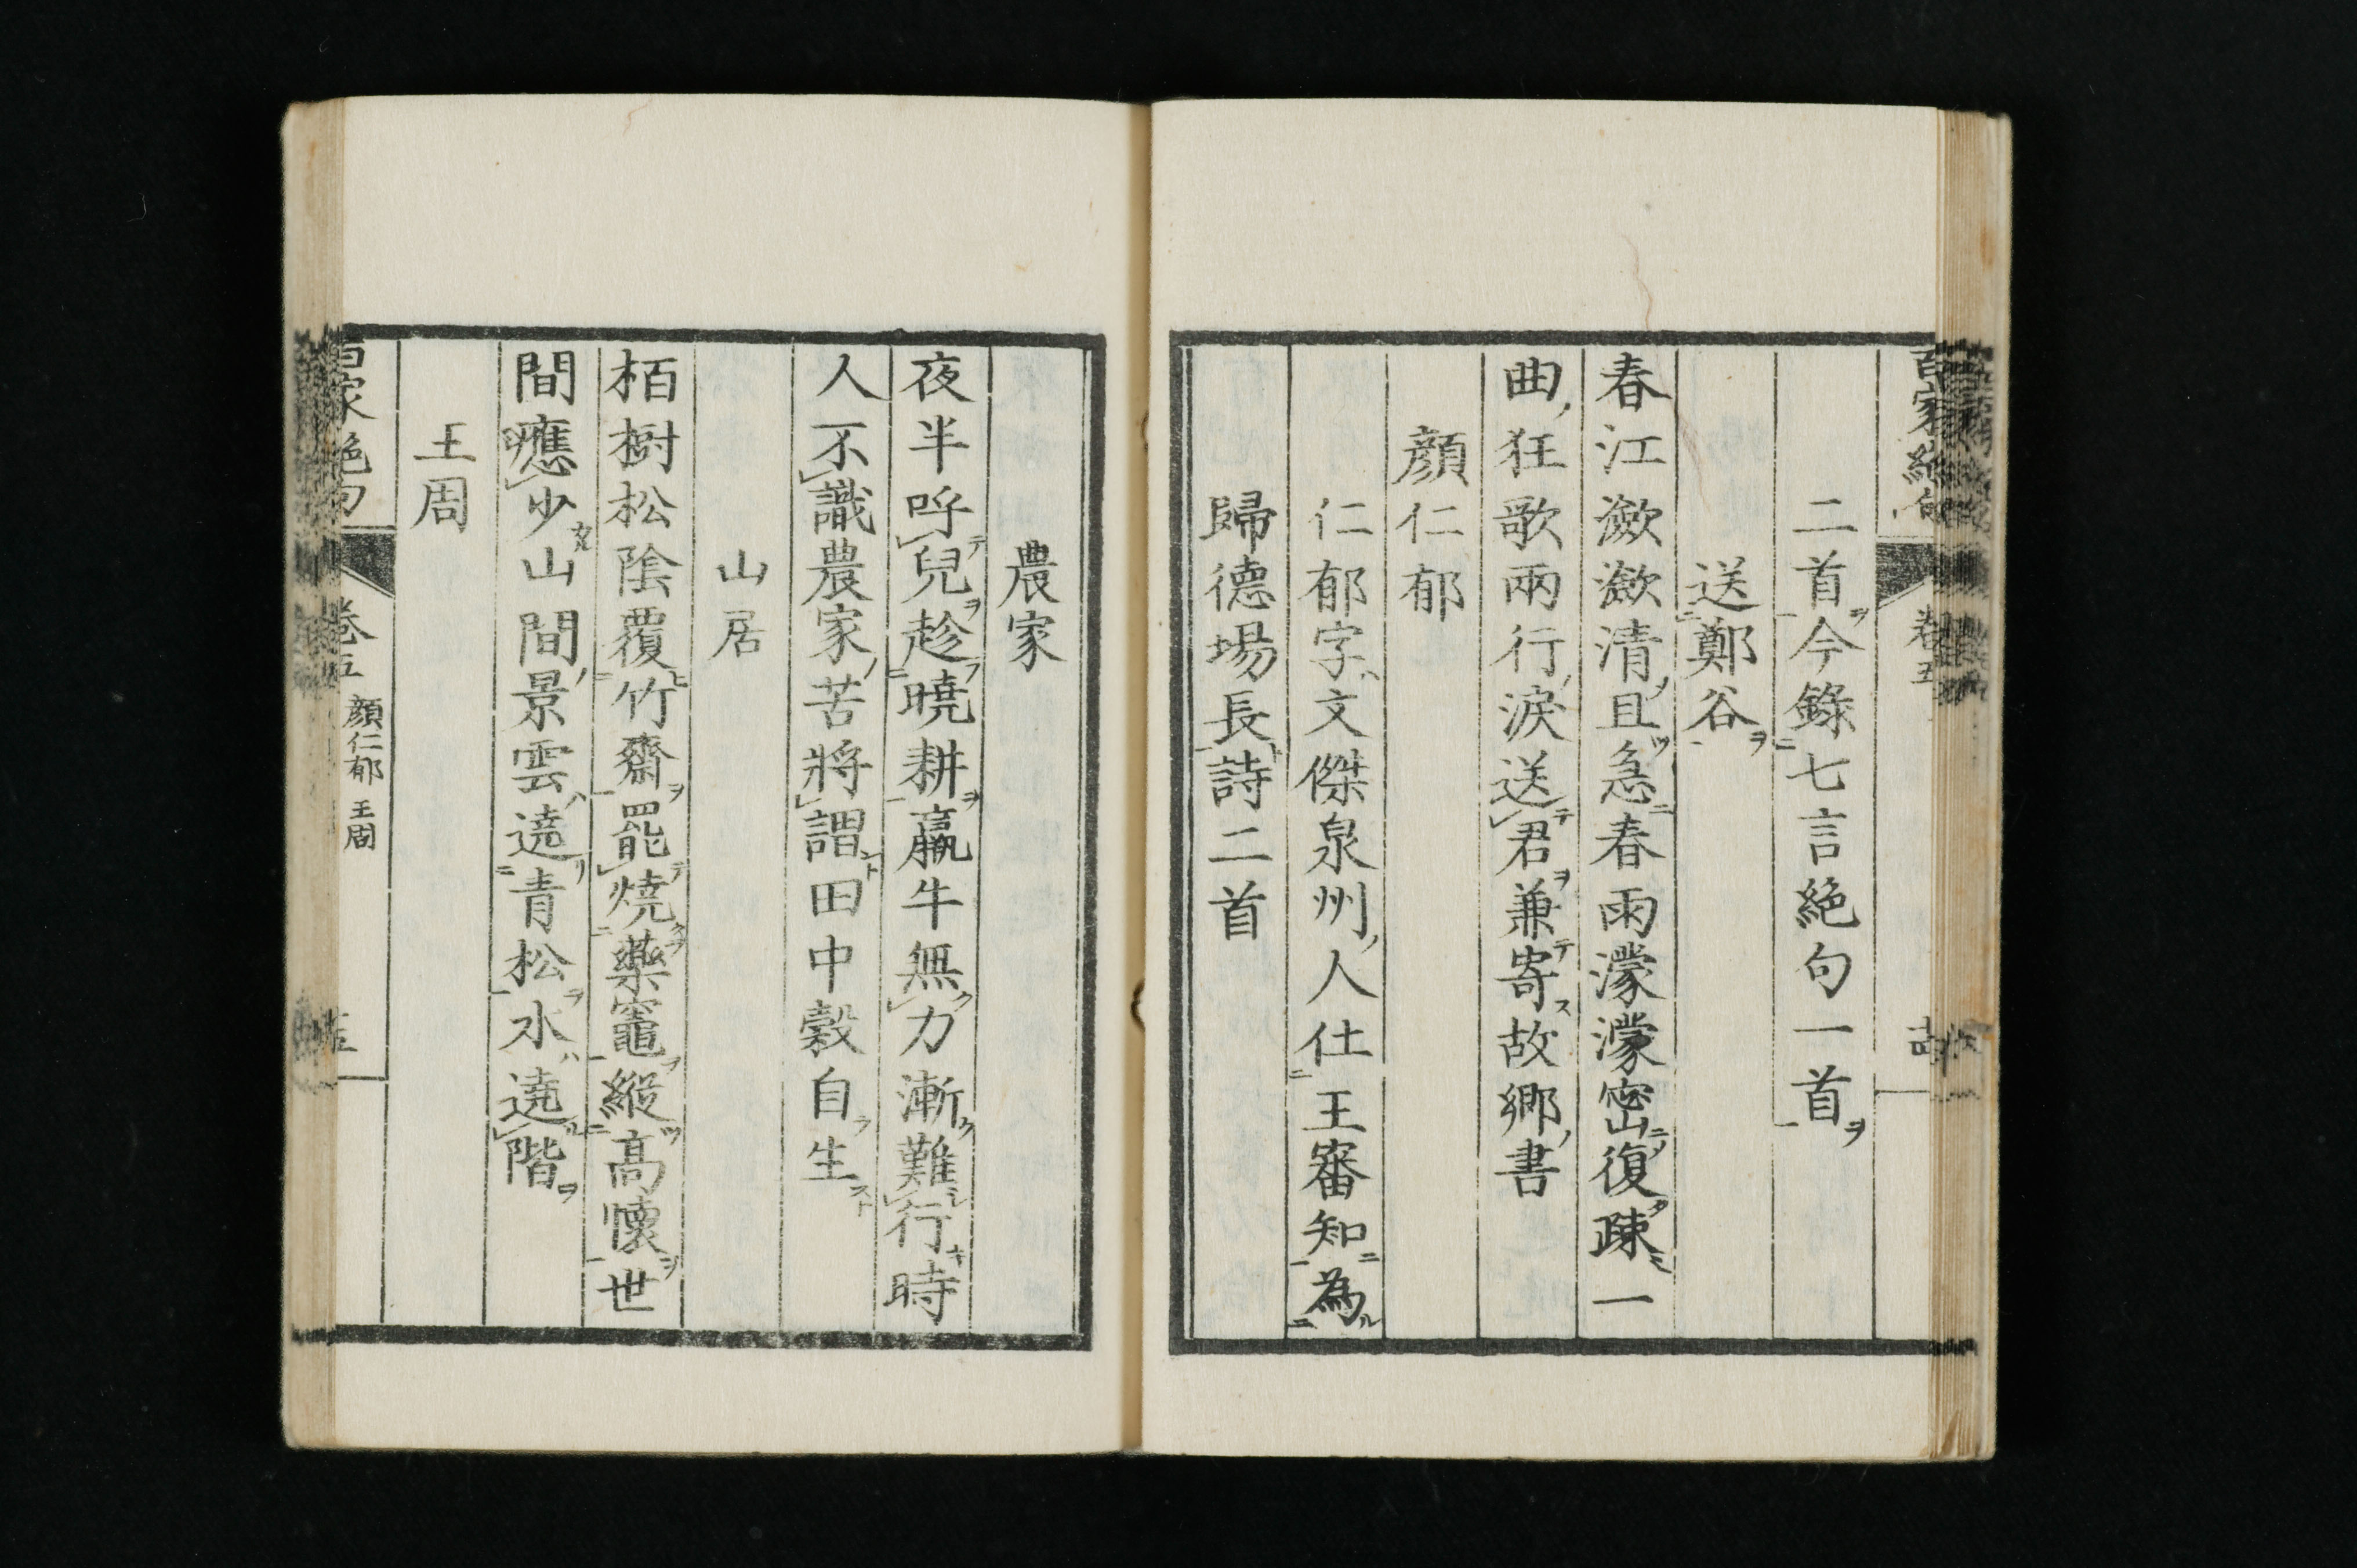 二首今錄七言絕句一首
送鄭谷
春江瀲瀲清且急春雨濛濛密復疎一
曲狂歌兩行淚送君兼寄故鄉書
顏仁郁
仁郁字文傑泉州人仕王審知為
歸德場長詩二首
農家
夜半呼兒趁曉耕羸牛無力漸難行時
人不識農家苦將謂田中穀自生
山居
栢樹松陰覆竹齋罷燒藥竈縱高懷世
間應少山間景雲遶青松水遶階
王周
百家絕句 卷五 顏仁郁 王周